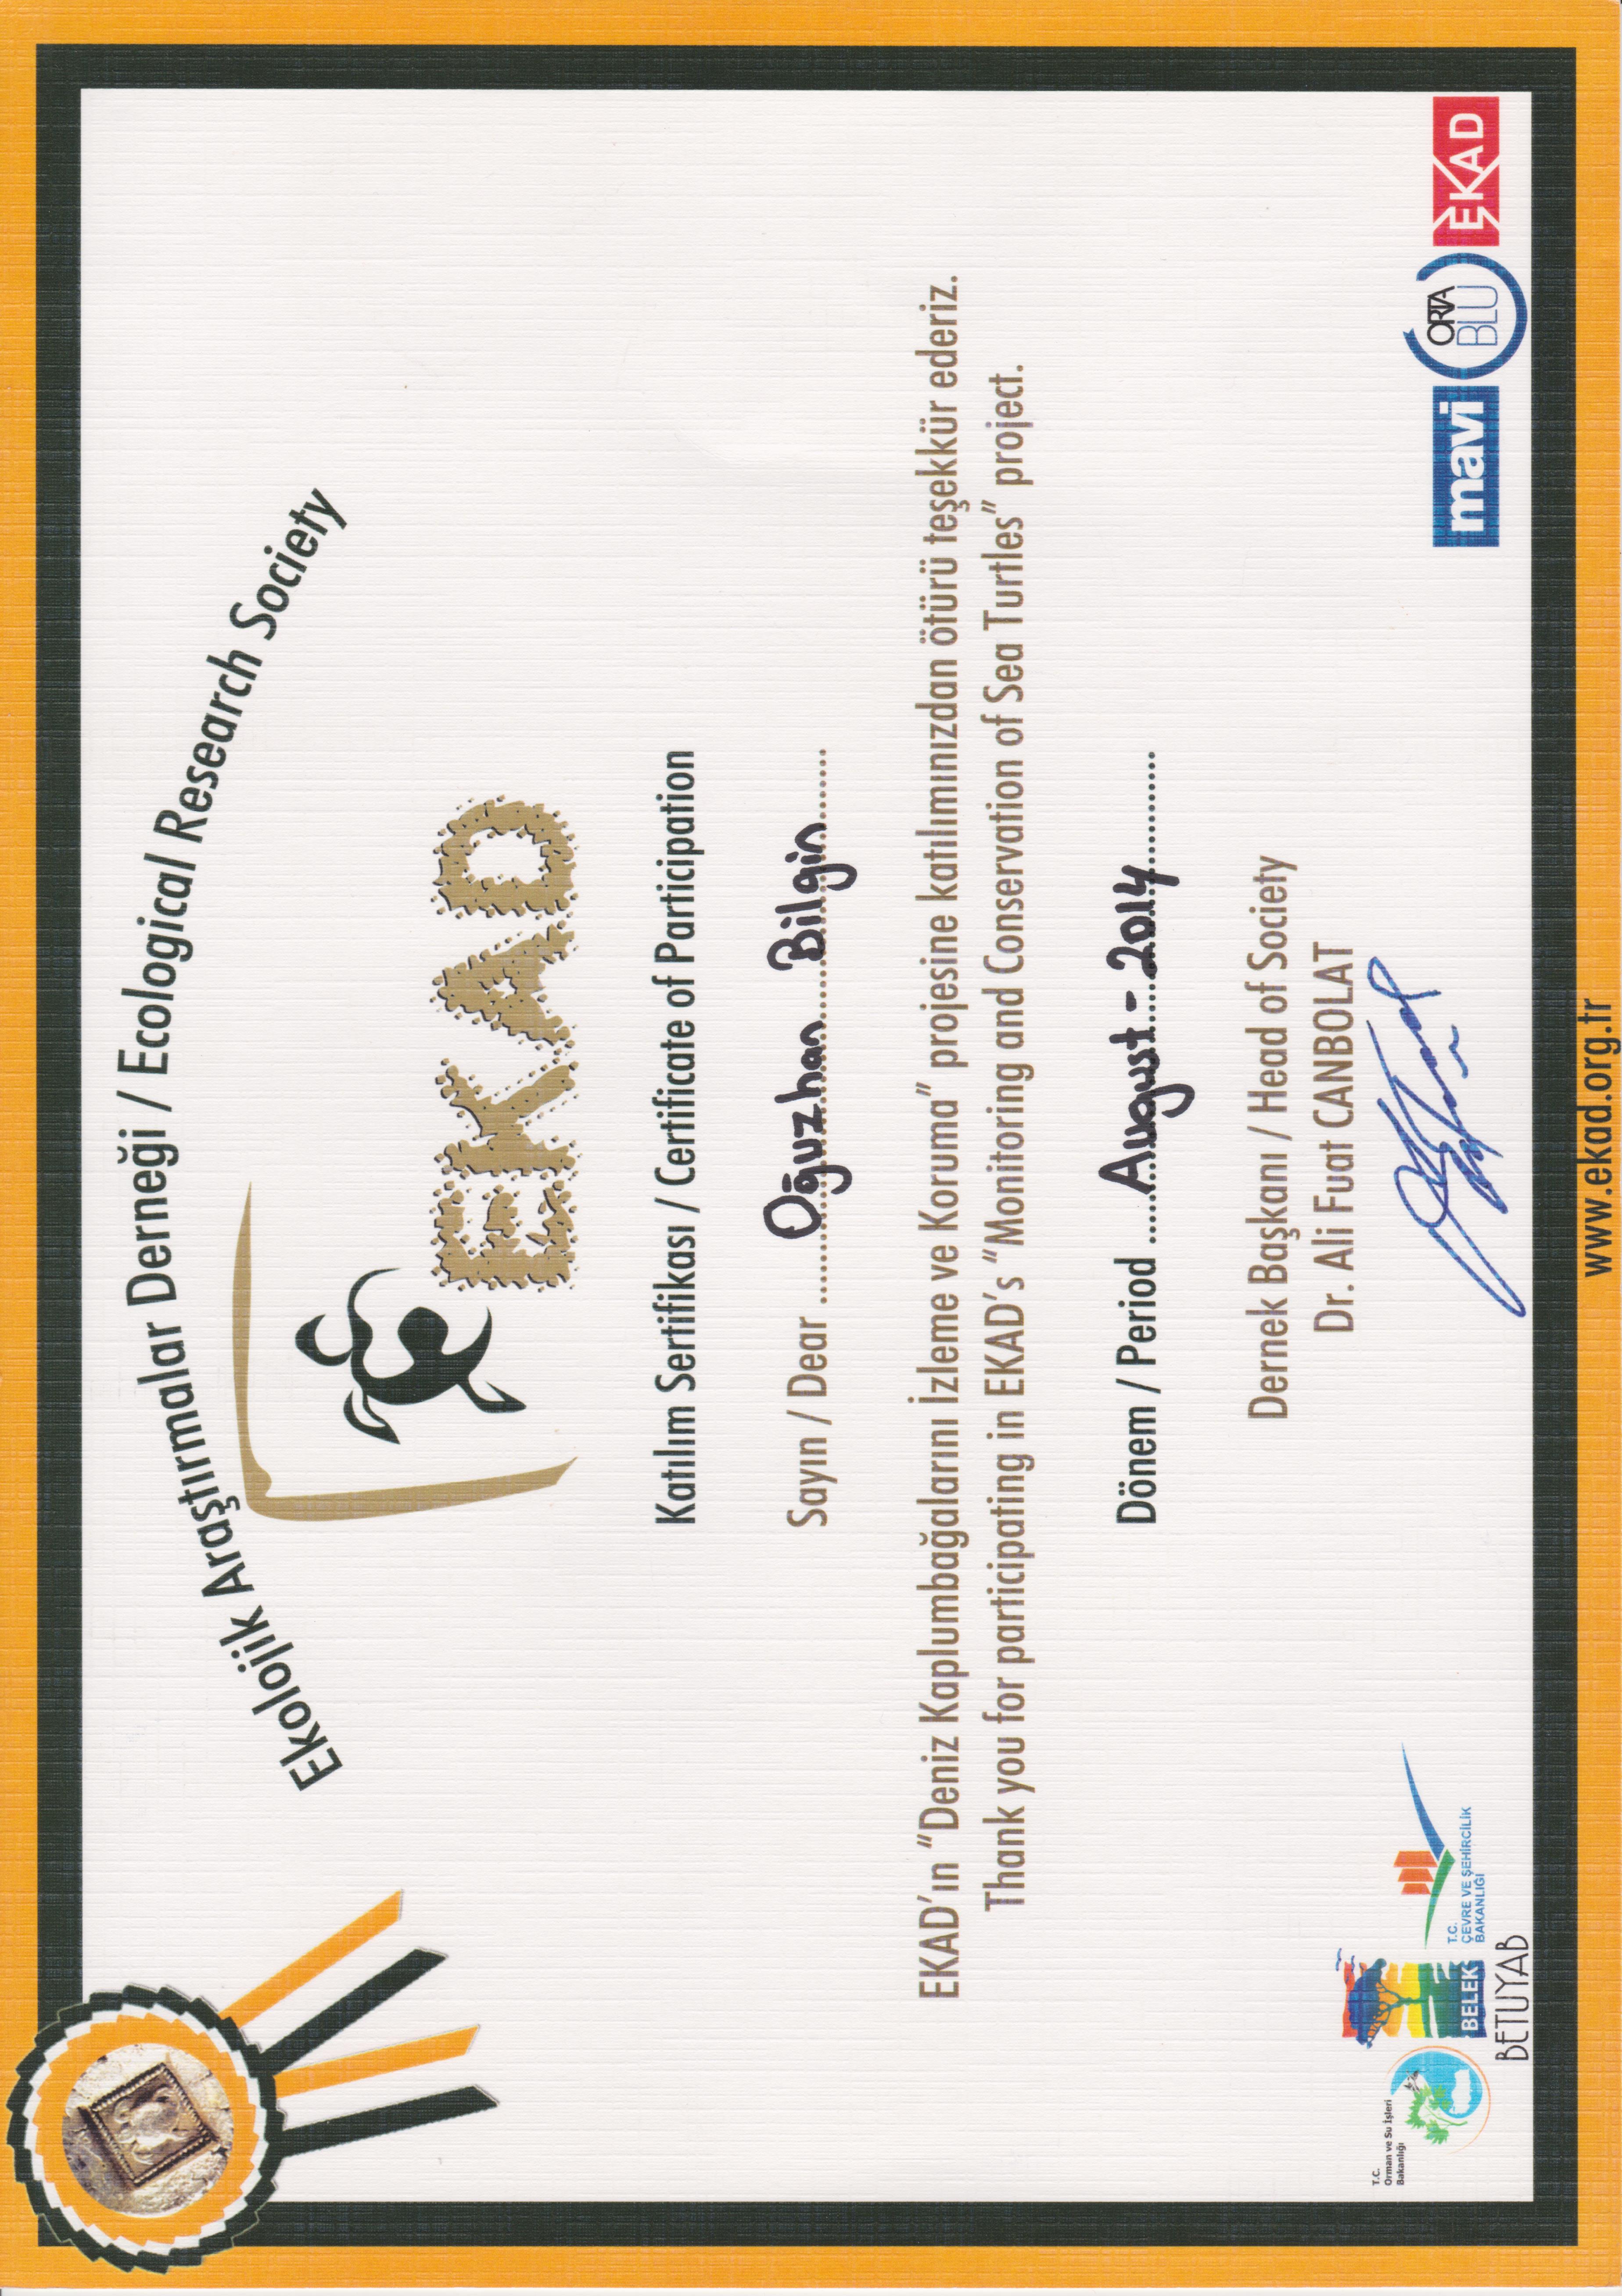 Ekolojik Araştırmalar Derneği / Ecological Research Society
EKAD
Katılım Sertifikası / Certificate of Participation
Sayın / Dear ........Oğuzhan Bilgin........
EKAD'ın “Deniz Kaplumbağalarını İzleme ve Koruma” projesine katılımınızdan ötürü teşekkür ederiz.
Thank you for participating in EKAD's “Monitoring and Conservation of Sea Turtles” project.
Dönem / Period ....August - 2014............
Dernek Başkanı / Head of Society
Dr. Ali Fuat CANBOLAT
T.C.
Orman ve Su İşleri
Bakanlığı
BELEK
BETUYAB
T.C.
ÇEVRE VE ŞEHİRCİLİK
BAKANLIĞI
mavi
ORTA
BLU
EKAD
www.ekad.org.tr